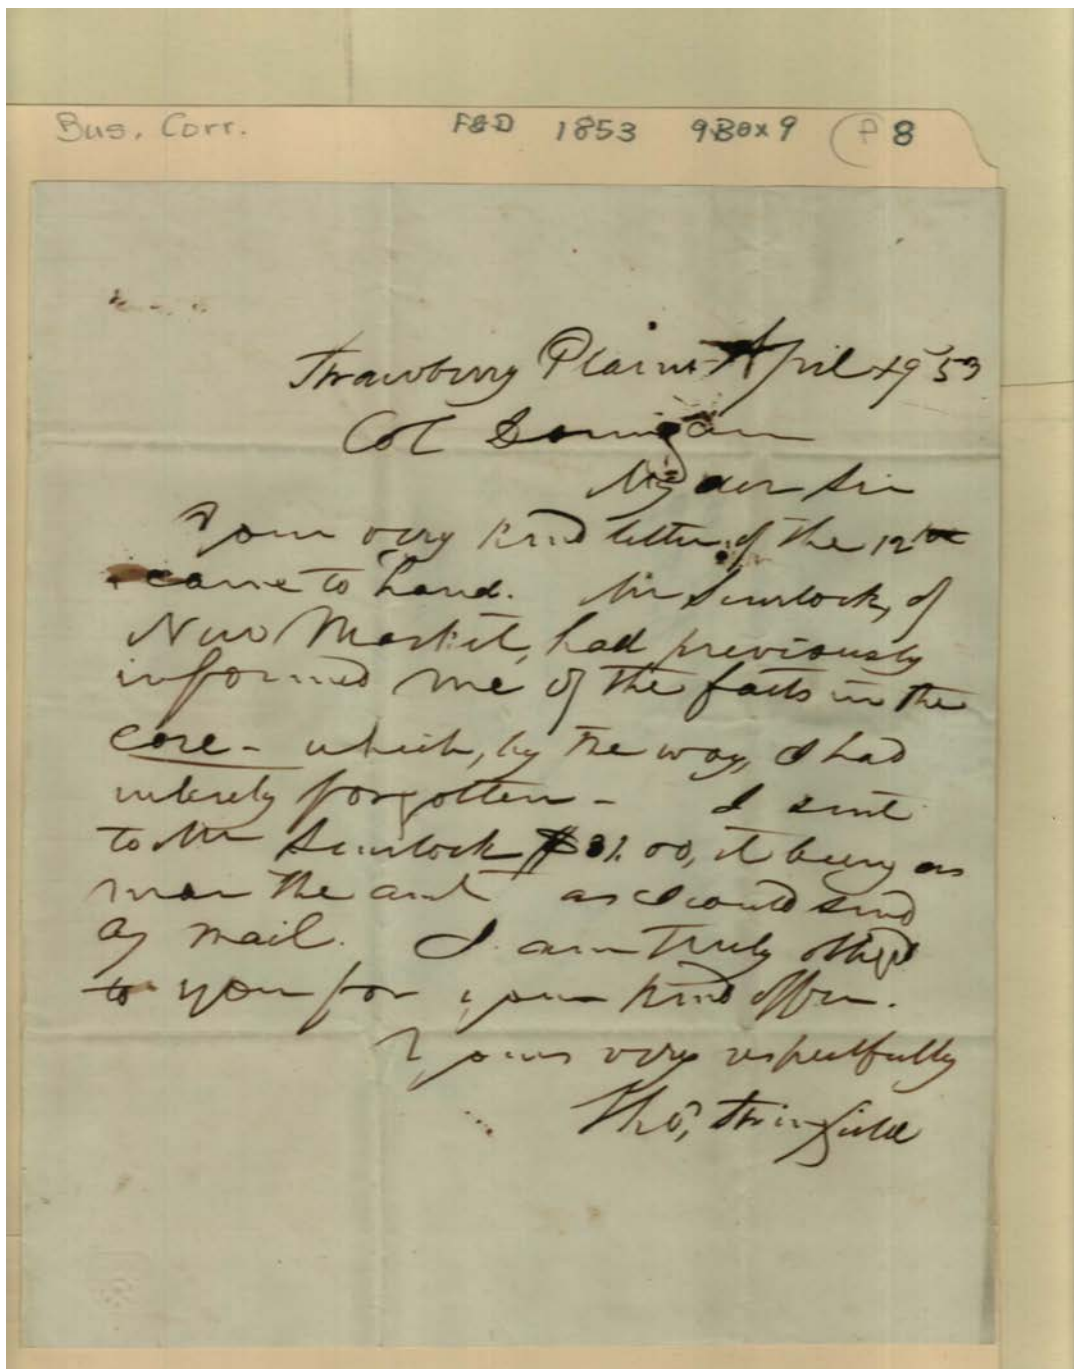 Bus. Corr. F&D 1853 9 Box 9 (P 8
Strawberry Plains April 19 '53
Col
My dear Sir
Your very kind letter of the 12th
came to hand. Mr Scurlock, of
New Market, had previously
informed me of the facts in the
case - which, by the way, I had
entirely forgotten - I sent
to Mr Scurlock $31.00, it being as
near the amt as I could send
by mail. I am truly oblig'd
to you for your kind offer.
Yours very respectfully
Thos, Stringfield